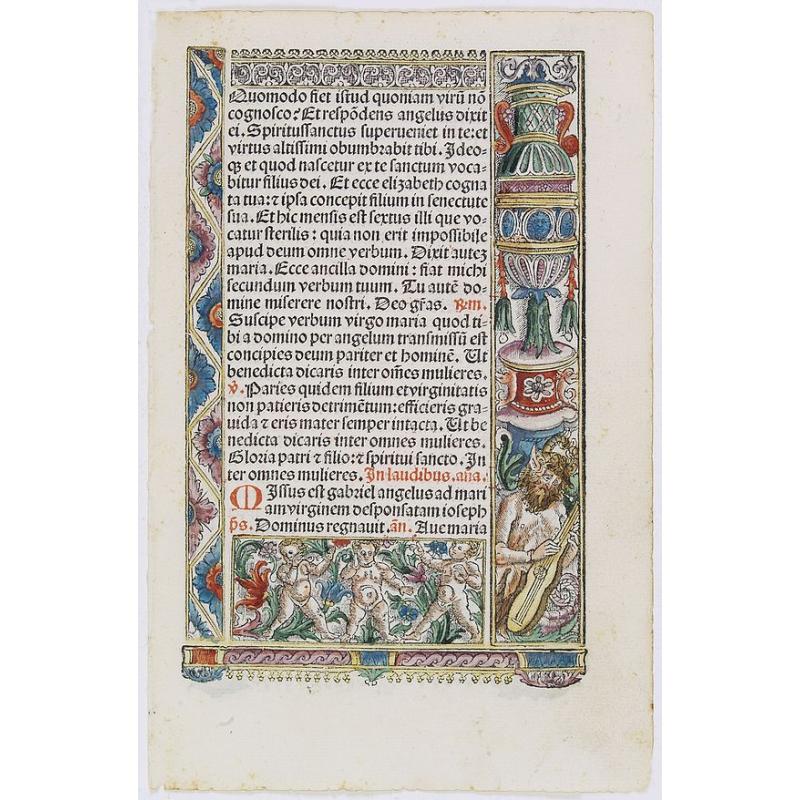 Quomodo fiet istud quoniam virũ nõ
cognosco? Et respõdens angelus dixit
ei. Spiritussanctus superueniet in te: et
virtus altissimi obumbrabit tibi. Ideo-
qꝫ et quod nascetur ex te sanctum voca-
bitur filius dei. Et ecce elizabeth cogna
ta tua: ⁊ ipsa concepit filium in senectute
sua. Et hic mensis est sextus illi que vo-
catur sterilis: quia non erit impossibile
apud deum omne verbum. Dixit autez
maria. Ecce ancilla domini: fiat michi
secundum verbum tuum. Tu autẽ do-
mine miserere nostri. Deo gr̃as. ꝶm.
Suscipe verbum virgo maria quod ti-
bi a domino per angelum transmissũ est
concipies deum pariter et hominẽ. Ut
benedicta dicaris inter om̃es mulieres.
℣. Paries quidem filium et virginitatis
non patieris detrimẽtum: efficieris gra-
uida ⁊ eris mater semper intacta. Ut be
nedicta dicaris inter omnes mulieres.
Gloria patri ⁊ filio: ⁊ spiritui sancto. In
ter omnes mulieres. In laudibus. añа.
Missus est gabriel angelus ad mari
am virginem desponsatam ioseph
p̃s. Dominus regnauit. añ. Aue maria